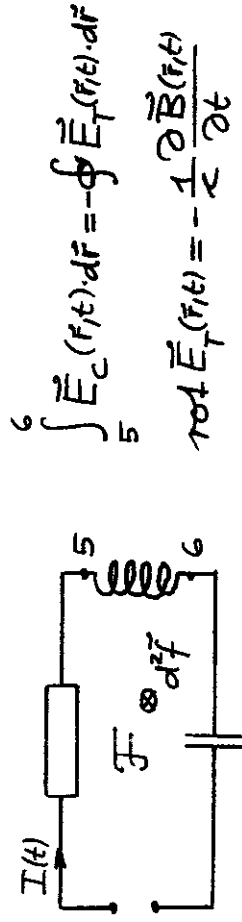 I(t)
5
ℱ ⊗ d²f⃗
6
∫₅⁶ E⃗_C(r⃗,t)·dr⃗ = -∮ E⃗_T(r⃗,t)·dr⃗
rot E⃗_T(r⃗,t) = -1/c ∂B⃗(r⃗,t)/∂t